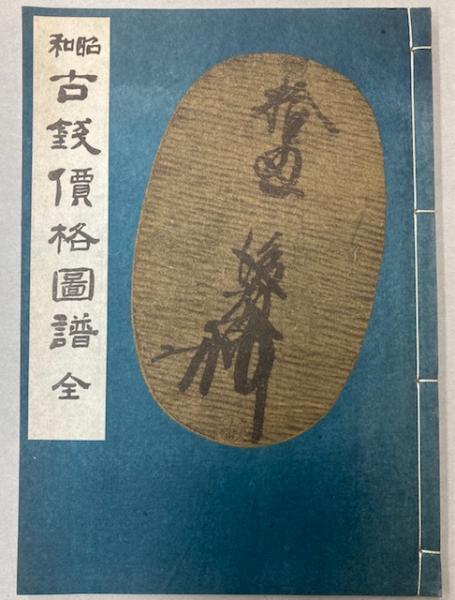 昭和
古錢價格圖譜 全
拾両
後藤